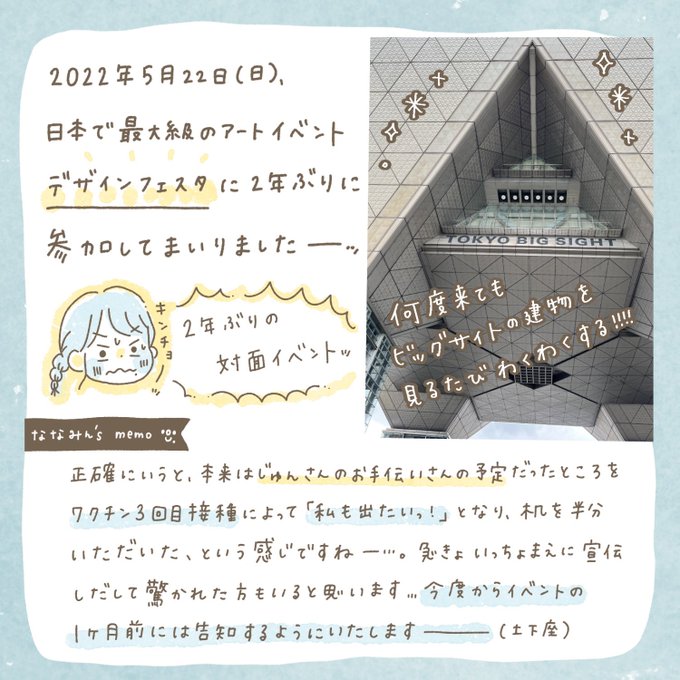 2022年5月22日(日)、
日本で最大級のアートイベント
デザインフェスタに2年ぶりに
参加してまいりましたー…ッ
キンチョー
2年ぶりの
対面イベントッ
TOKYO BIG SIGHT
何度来ても
ビッグサイトの建物を
見るたびわくわくする!!!!
ななみん's memo
正確にいうと、本来はじゅんさんのお手伝いさんの予定だったところを
ワクチン3回目接種によって「私も出たいっ!」となり、机を半分
いただいた、という感じですねー…。急きょいっちょまえに宣伝
しだして驚かれた方もいると思います…今度からイベントの
1ヶ月前には告知するようにいたします———(土下座)